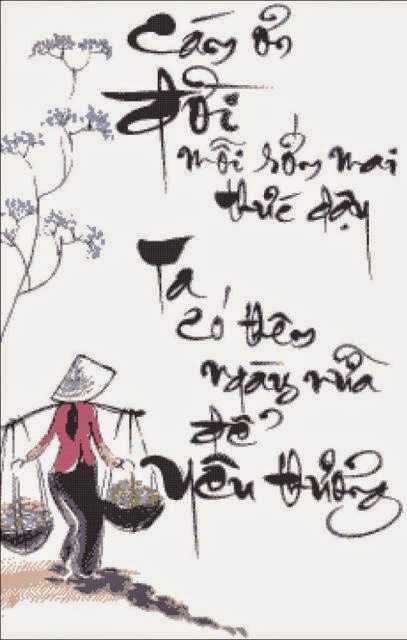 Cám ơn
đời
mỗi sớm mai
thức dậy
Ta
có thêm
ngày nữa
để
yêu thương